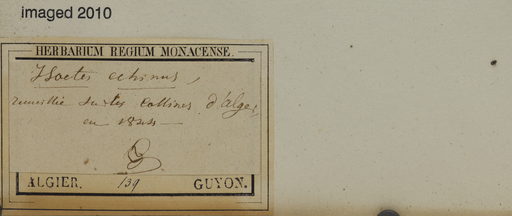 imaged 2010
HERBARIUM REGIUM MONACENSE.
Isoetes echinus,
recueillie sur les Collines d'alger
en 1844
ALGIER. 139 GUYON.